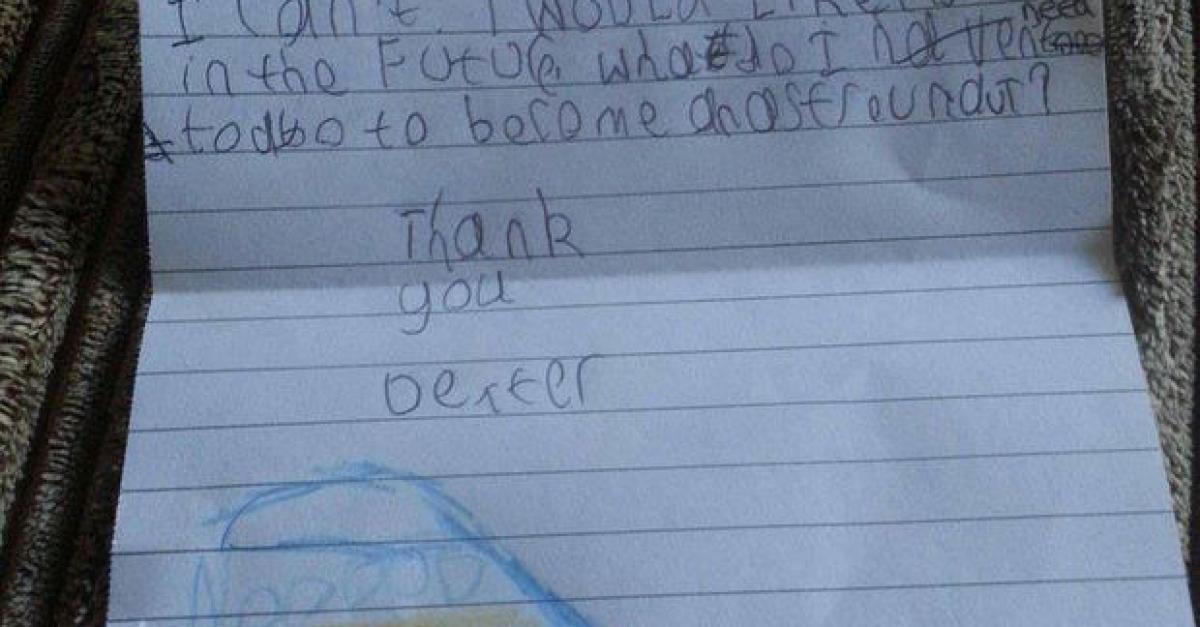 I can't. I would like
in the Future. what do I need
to do to become anastroundut?
Thank
you
Dexter